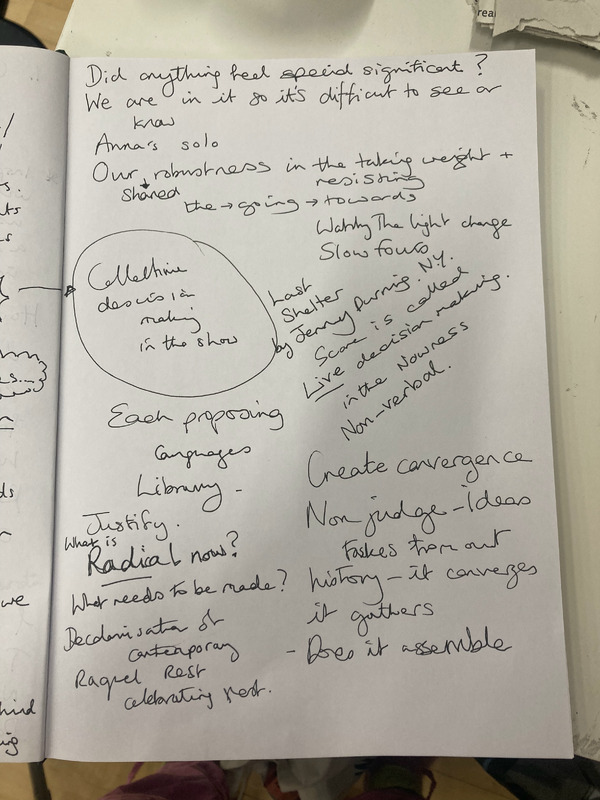 Did anything feel special significant?
We are in it so it's difficult to see or
know
Anna's solo
Our robustness in the taking weight +
shared
resisting
the → going → towards
Watching The light change
Slow focus
Collective
decision
making
in the show
Last
Shelter
by Jenny N.Y.
Score is called
Live decision making.
in the Nowness
Non-verbal.
Each proposing
languages
Library -
Justify.
What is
Radical now?
What needs to be made?
Decolonisation of
contemporary
Raquel Rest
celebrating rest.
Create convergence
Non judge - Ideas
from out
history - it converges
it gathers
- Does it assemble
rea